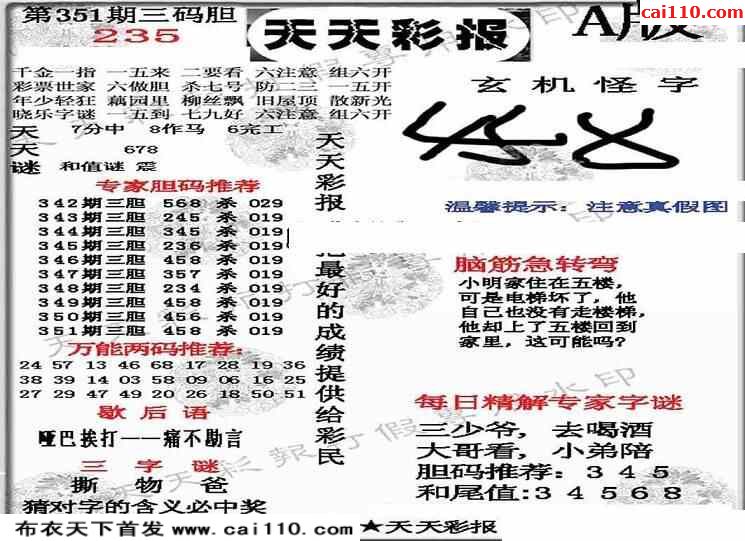 第351期三码胆
235
天天彩报
A版
cai110.com
千金一指 一五来 二要看 六注意 组六开
彩票世家 六做胆 杀七号 防二三 一五开
年少轻狂 藕园里 柳丝飘 旧屋顶 散新光
晓乐字谜 一五到 七九好 六注意 组六开
天 7分中 8作马 6完工
天 678
谜 和值谜 震
专家胆码推荐
342期三胆 568 杀 029
343期三胆 245 杀 019
344期三胆 345 杀 019
345期三胆 236 杀 019
346期三胆 458 杀 019
347期三胆 357 杀 019
348期三胆 234 杀 019
349期三胆 458 杀 019
350期三胆 456 杀 019
351期三胆 458 杀 019
万能两码推荐:
24 57 13 46 68 17 28 19 36
38 39 14 03 58 09 06 16 25
27 29 47 49 20 26 18 50 51
歇后语
哑巴挨打——痛不勘言
三字谜
撕 物 爸
猜对字的含义必中奖
天天彩报
把最好的成绩提供给彩民
玄机怪字
温馨提示: 注意真假图
脑筋急转弯
小明家住在五楼,
可是电梯坏了, 他
自己也没有走楼梯,
他却上了五楼回到
家里, 这可能吗?
每日精解专家字谜
三少爷, 去喝酒
大哥看, 小弟陪
胆码推荐: 3 4 5
和尾值:3 4 5 6 8
布衣天下首发 www.cai110.com ★天天彩报